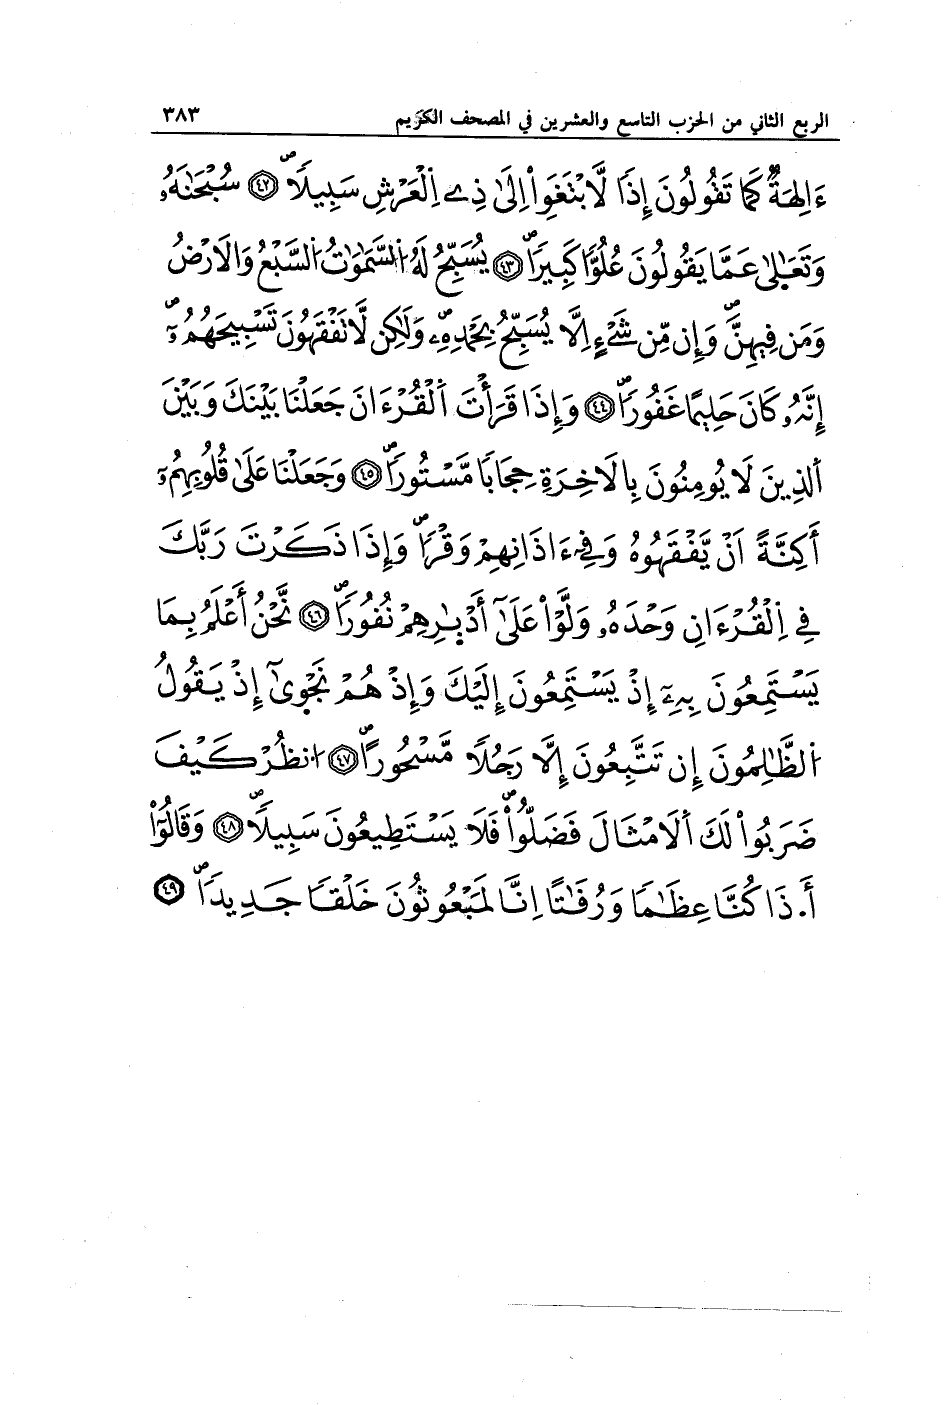 الربع الثاني من الحزب التاسع والعشرين في المصحف الكريم ٣٨٣
ءَالِهَةٌ كَمَا تَقُولُونَ إِذًا لَّابْتَغَوِاْ اِلَىٰ ذِے اِلْعَرْشِ سَبِيلًاۖ ٤٢ سُبْحَٰنَهُۥ
وَتَعَٰلَىٰ عَمَّا يَقُولُونَ عُلُوًّا كَبِيرًاۖ ٤٣ يُسَبِّحُ لَهُ اُ۬لسَّمَٰوَٰتُ اُ۬لسَّبْعُ وَالَارْضُ
وَمَن فِيهِنَّۖ وَإِن مِّن شَےْءٍ اِلَّا يُسَبِّحُ بِحَمْدِهِۦۖ وَلَٰكِن لَّا تَفْقَهُونَ تَسْبِيحَهُمُۥٓۖ
إِنَّهُۥ كَانَ حَلِيمًا غَفُورًاۖ ٤٤ وَإِذَا قَرَأْتَ اَ۬لْقُرْءَانَ جَعَلْنَا بَيْنَكَ وَبَيْنَ
اَ۬لذِينَ لَا يُومِنُونَ بِالَاخِرَةِ حِجَابًا مَّسْتُورًاۖ ٤٥ وَجَعَلْنَا عَلَىٰ قُلُوبِهِمُۥٓ
أَكِنَّةً اَنْ يَّفْقَهُوهُ وَفِےٓ ءَاذَانِهِمْ وَقْرًاۖ وَإِذَا ذَكَرْتَ رَبَّكَ
فِے اِ۬لْقُرْءَانِ وَحْدَهُۥ وَلَّوْاْ عَلَىٰٓ أَدْبَٰرِهِمْ نُفُورًاۖ ٤٦ نَّحْنُ أَعْلَمُ بِمَا
يَسْتَمِعُونَ بِهِۦٓ إِذْ يَسْتَمِعُونَ إِلَيْكَ وَإِذْ هُمْ نَجْوَىٰٓ إِذْ يَقُولُ
اُ۬لظَّٰلِمُونَ إِن تَتَّبِعُونَ إِلَّا رَجُلًا مَّسْحُورًاۖ ٤٧ اُ۟نظُرْ كَيْفَ
ضَرَبُواْ لَكَ اَ۬لَامْثَالَ فَضَلُّواْۖ فَلَا يَسْتَطِيعُونَ سَبِيلًاۖ ٤٨ وَقَالُوٓاْ
أَ.ذَا كُنَّا عِظَٰمًا وَرُفَٰتًا اِنَّا لَمَبْعُوثُونَ خَلْقًا جَدِيدًاۖ ٤٩